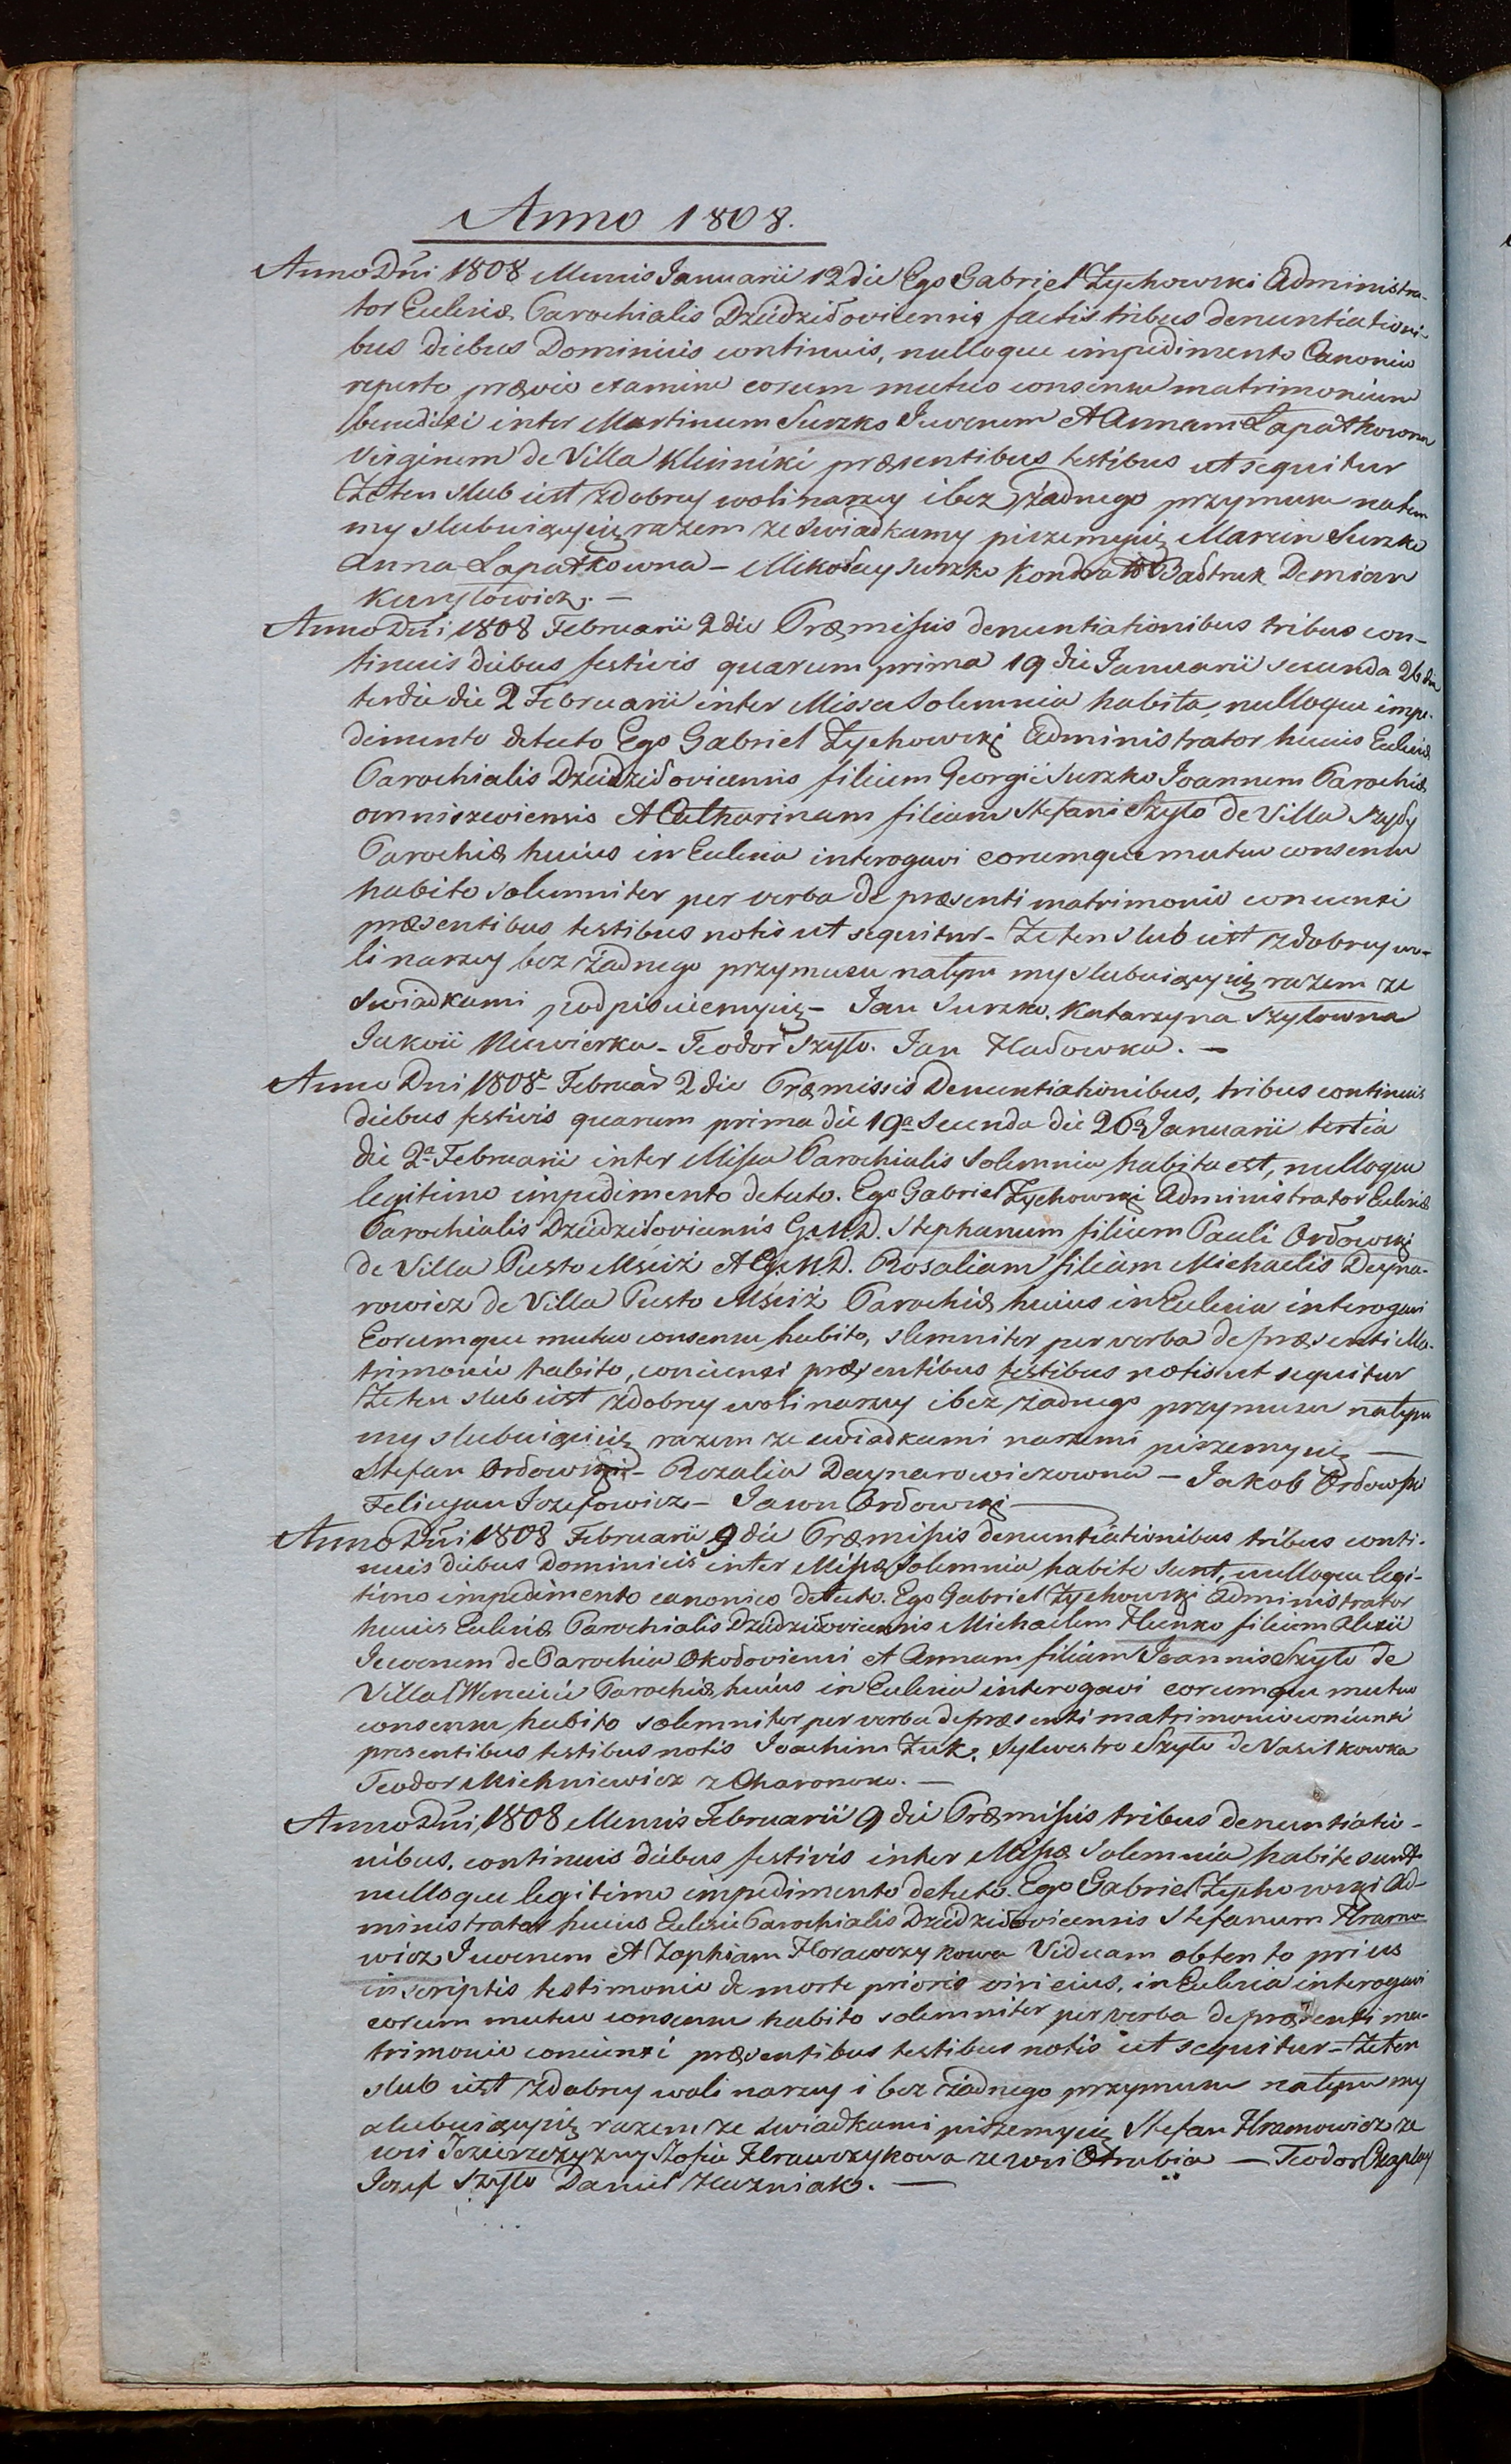 Anno 1808.
Anno Dni 1808 Mensis Januarii 12 die Ego Gabriel Zychowski Administra-
tor Eclesiæ Parochialis Dziedziłovicensis factis tribus denuntiationi-
bus diebus Dominicis continuis, nulloque impedimento Canonico
reperto prævio examine eorum mutuo consensu matrimonium
benedixi inter Martinum Surzko Juvenem et Annam Łapatkowna
Virginem de Villa Klinniki præsentibus testibus ut sequitur
że ten slub iest zdobrey woli naszey i bez żadnego przymusu natem
my slubuiączysię razem ze swiadkamy piszemysię Marcin Surzko
Anna Łapatkowna - Mikołay Surzko Kondrat Demian
Kuryłowicz. -
Anno Dni 1808 Februarii 2 die Præmissis denuntiationibus tribus con-
tinuis diebus festivis quarum prima 19 die Januarii secunda 26 die
tertia die 2 Februarii inter Missa Solemnia habita, nulloque impe-
dimento detecto Ego Gabriel Zychowski Administrator huius Eclesiæ
Parochialis Dziedziłovicensis filium Georgii Surzko Joannem Parochiæ
omniszewiensis et Catharinam filiam Stefani Szyło de Villa Szyły
Parochiæ huius in Eclesia interogavi eorumque mutuo consensu
habito solemniter per verba de præsenti matrimonio coniunxi
præsentibus testibus notis ut sequitur - że ten slub iest zdobrey wo-
li naszey bez żadnego przymusu natym my slubuiączysię razem ze
Swiadkami podpisuiemysię - Jan Surzko. Katarzyna Szyłowna
Jakow Niewierka - Teodor Szyło. Jan Hadowka. -
Anno Dni 1808 Februar 2 die Præmissis Denuntiationibus, tribus continuis
diebus festivis quarum prima die 19a Secunda die 26a Januarii tertia
die 2a Februarii inter Missa Parochialis Solemnia habita est, nulloque
legitimo impedimento detecto. Ego Gabriel Zychowski Administrator Eclesiæ
Parochialis Dziedziłovicensis G.M.D. Stephanum filium Pauli Ordowski
de Villa Pusto Mściż et G.M.D. Rosaliam filiam Michaelis Deyna-
rowicz de Villa Pusto Mściż Parochiæ huius in Eclesia interogavi
Eorumque mutuo consensu habito, slemniter per verba de præsenti Ma-
trimonio habito, coniunxi præsentibus testibus notis ut sequitur
że ten slub iest zdobrey woli naszey i bez żadnego przymusu natym
my slubuiącisię razem ze swiadkami naszemi piszemysię -
Stefan Ordowski - Rozalia Daynarowiczowna - Jakob Ordowski
Felicyan Jozefowicz - Jawn Ordowski -
Anno Dni 1808 Februarii 9 die Præmissis denuntiationibus tribus conti-
nuis diebus Dominicis inter Missæ Solemnia habite sunt, nulloque legi-
timo impedimento canonico detecto. Ego Gabriel Zychowski Administrator
huius Eclesiæ Parochialis Dziedziłovicensis Michaelem Hunko filium Alexii
Juvenem de Parochia Okołoviensi et Annam filiam Joannis Szyło de
Villa Parochiæ huius in Eclesia interogavi eorumque mutuo
consensu habito solemniter per verba de præsenti matrimonio coniunxi
presentibus testibus notis Joachim Żuk, Sylwestro Szyło de Vasilkowka
Teodor Michniewicz z Charonoko. -
Anno Dni, 1808 Mensis Februarii 9 die Præmissis tribus denuntiatio-
nibus, continuis diebus festivis inter Missæ Solemnia habite sunt
nulloque legitimo impedimento detecto. Ego Gabriel Zychowski Ad-
ministrator huius Eclesie Parochialis Dziedziłovicensis Stefanum Hramo-
wicz Juvenem et Zophiam Horawczykowa Viduam obtento prius
in scriptis testimonio de morte prioris viri eius, in Eclesia interogavi
eorum mutuo consensu habito solemniter per verba de præsenti ma-
trimonio coniunxi præsentibus testibus notis ut sequitur - że ten
slub iest zdobrey woli naszey i bez żadnego przymusu natym my
slubuiączysię razem ze swiadkami piszemysię Stefan Hramowicz ze
wsi Jezierzczyzny Zofia Hrawczykowa ze wsi Otrubia - Teodor Czaplay
Jozef Szyło Daniel Huzniak. -